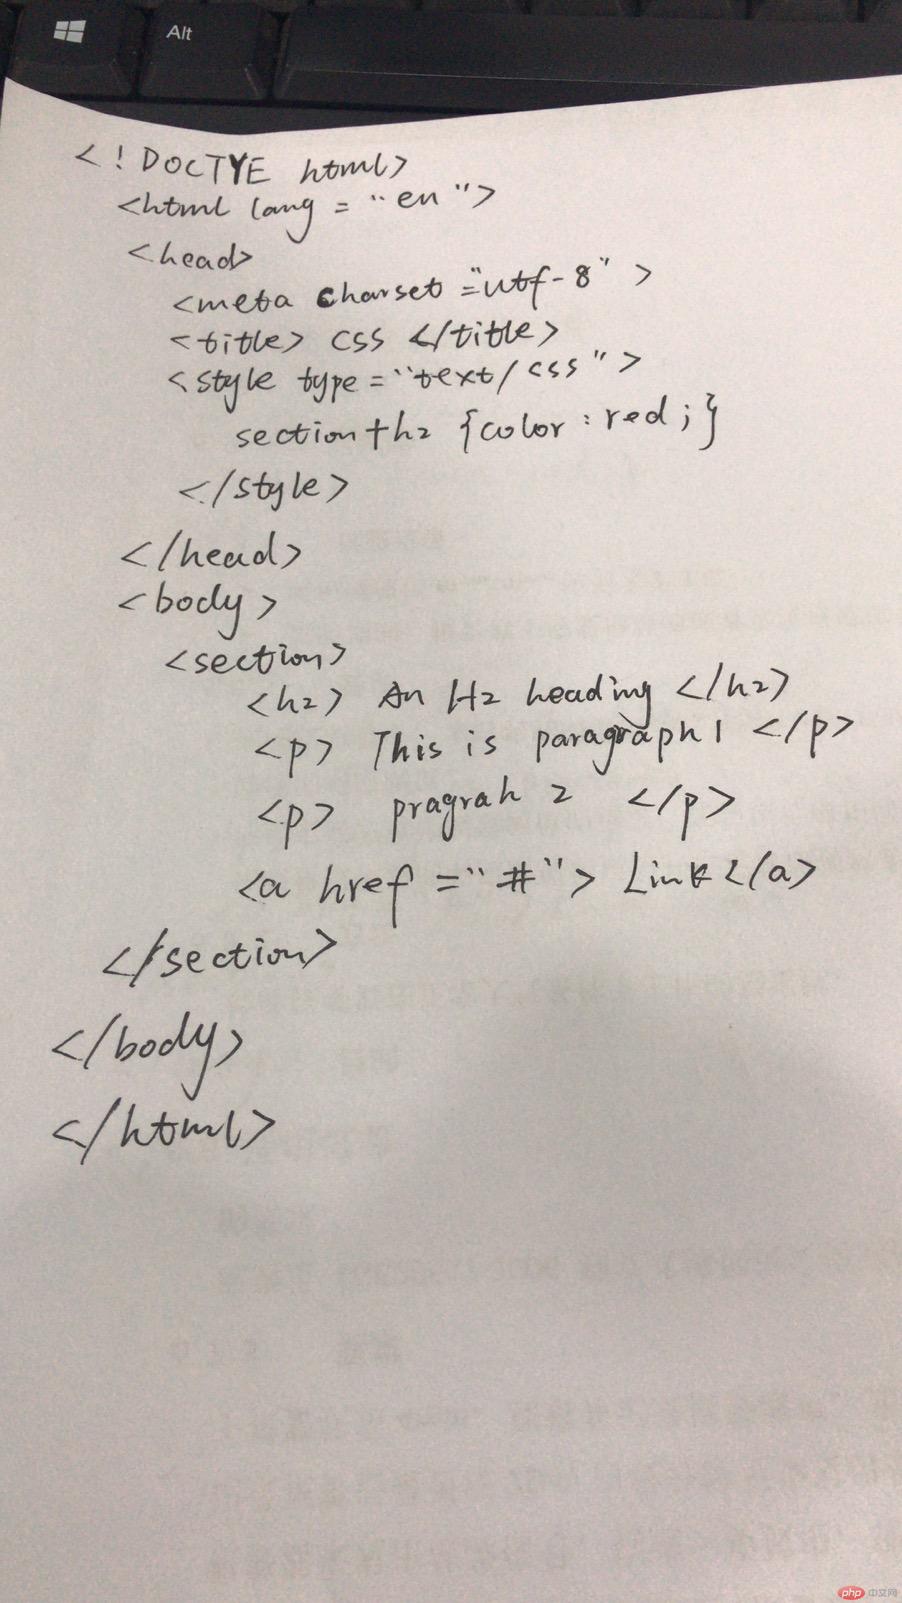 Alt
<! DOCTYE html>
<html lang = "en">
<head>
<meta charset ="utf-8" >
<title> css </title>
<style type = "text/css">
section+h2 {color : red ; }
</style>
</head>
<body>
<section>
<h2> An H2 heading </h2>
<p> This is paragraph1 </p>
<p> pragrah 2 </p>
<a href ="#"> Link </a>
</section>
</body>
</html>
php 中文网